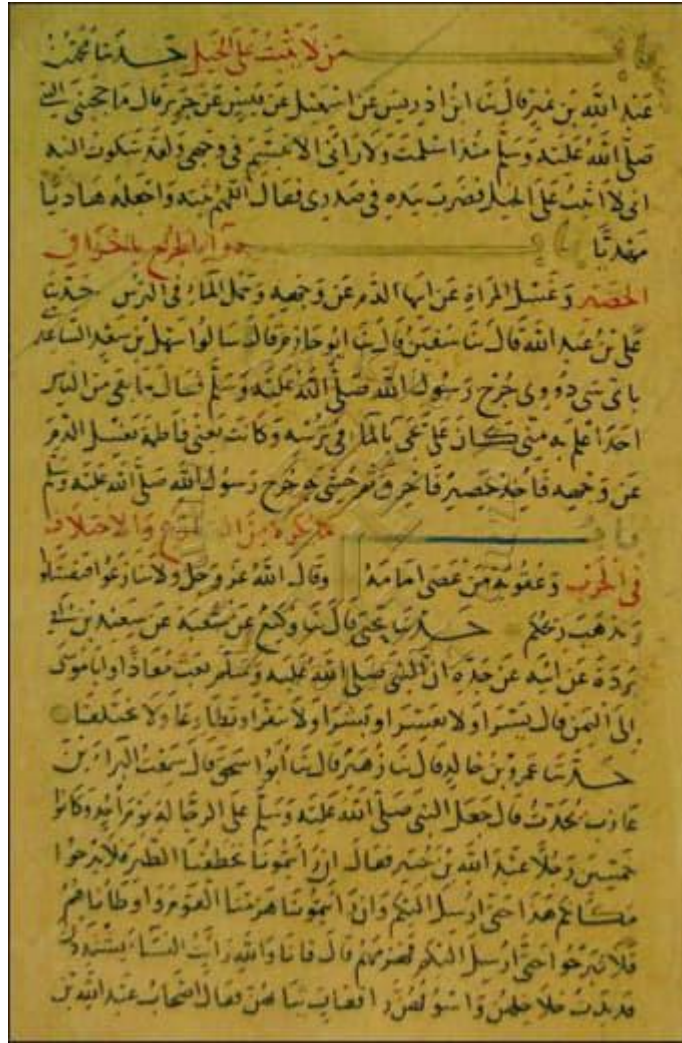 باب من لا يثبت على الخيل حدثنا محمد بن
عبد الله بن نمير قال ثنا ابن ادريس عن اسمعيل عن قيس عن جرير قال ما حجبني النبي
صلى الله عليه وسلم منذ اسلمت ولا راني الا تبسم في وجهي ولقد شكوت اليه
اني لا اثبت على الخيل فضرب بيده في صدري فقال اللهم ثبته واجعله هاديا
مهديا باب دواء الجرح باحراق
الحصير وغسل المراة عن ابيها الدم عن وجهه وحمل الماء في الترس حدثنا
علي بن عبد الله قال ثنا سفين قال ثنا ابو حازم قال سالوا سهل بن سعد الساعدي
باي شي دووي جرح رسول الله صلى الله عليه وسلم فقال ما بقي من الناس
احد اعلم به مني كان علي يجي بالماء في ترسه وكانت يعني فاطمة تغسل الدم
عن وجهه فاخذ حصير فاحرق ثم حشي به جرح رسول الله صلى الله عليه وسلم
باب ما يكره من التنازع والاختلاف
في الحرب وعقوبة من عصى امامه وقال الله عز وجل ولا تنازعوا فتفشلوا
وتذهب ريحكم حدثنا يحيى قال ثنا وكيع عن شعبة عن سعيد بن ابي
بردة عن ابيه عن جده ان النبي صلى الله عليه وسلم بعث معاذا وابا موسى
الى اليمن قال يسرا ولا تعسرا وبشرا ولا تنفرا وتطاوعا ولا تختلفا
حدثنا عمرو بن خالد قال ثنا زهير قال ثنا ابو اسحق قال سمعت البراء بن
عازب يحدث قال جعل النبي صلى الله عليه وسلم على الرجالة يوم احد وكانوا
خمسين رجلا عبد الله بن جبير فقال ان رايتمونا تخطفنا الطير فلا تبرحوا
مكانكم هذا حتى ارسل اليكم وان رايتمونا هزمنا القوم واوطاناهم
فلا تبرحوا حتى ارسل اليكم فهزمهم قال فانا والله رايت النساء يشتددن
قد بدت خلاخلهن واسوقهن رافعات ثيابهن فقال اصحاب عبد الله بن